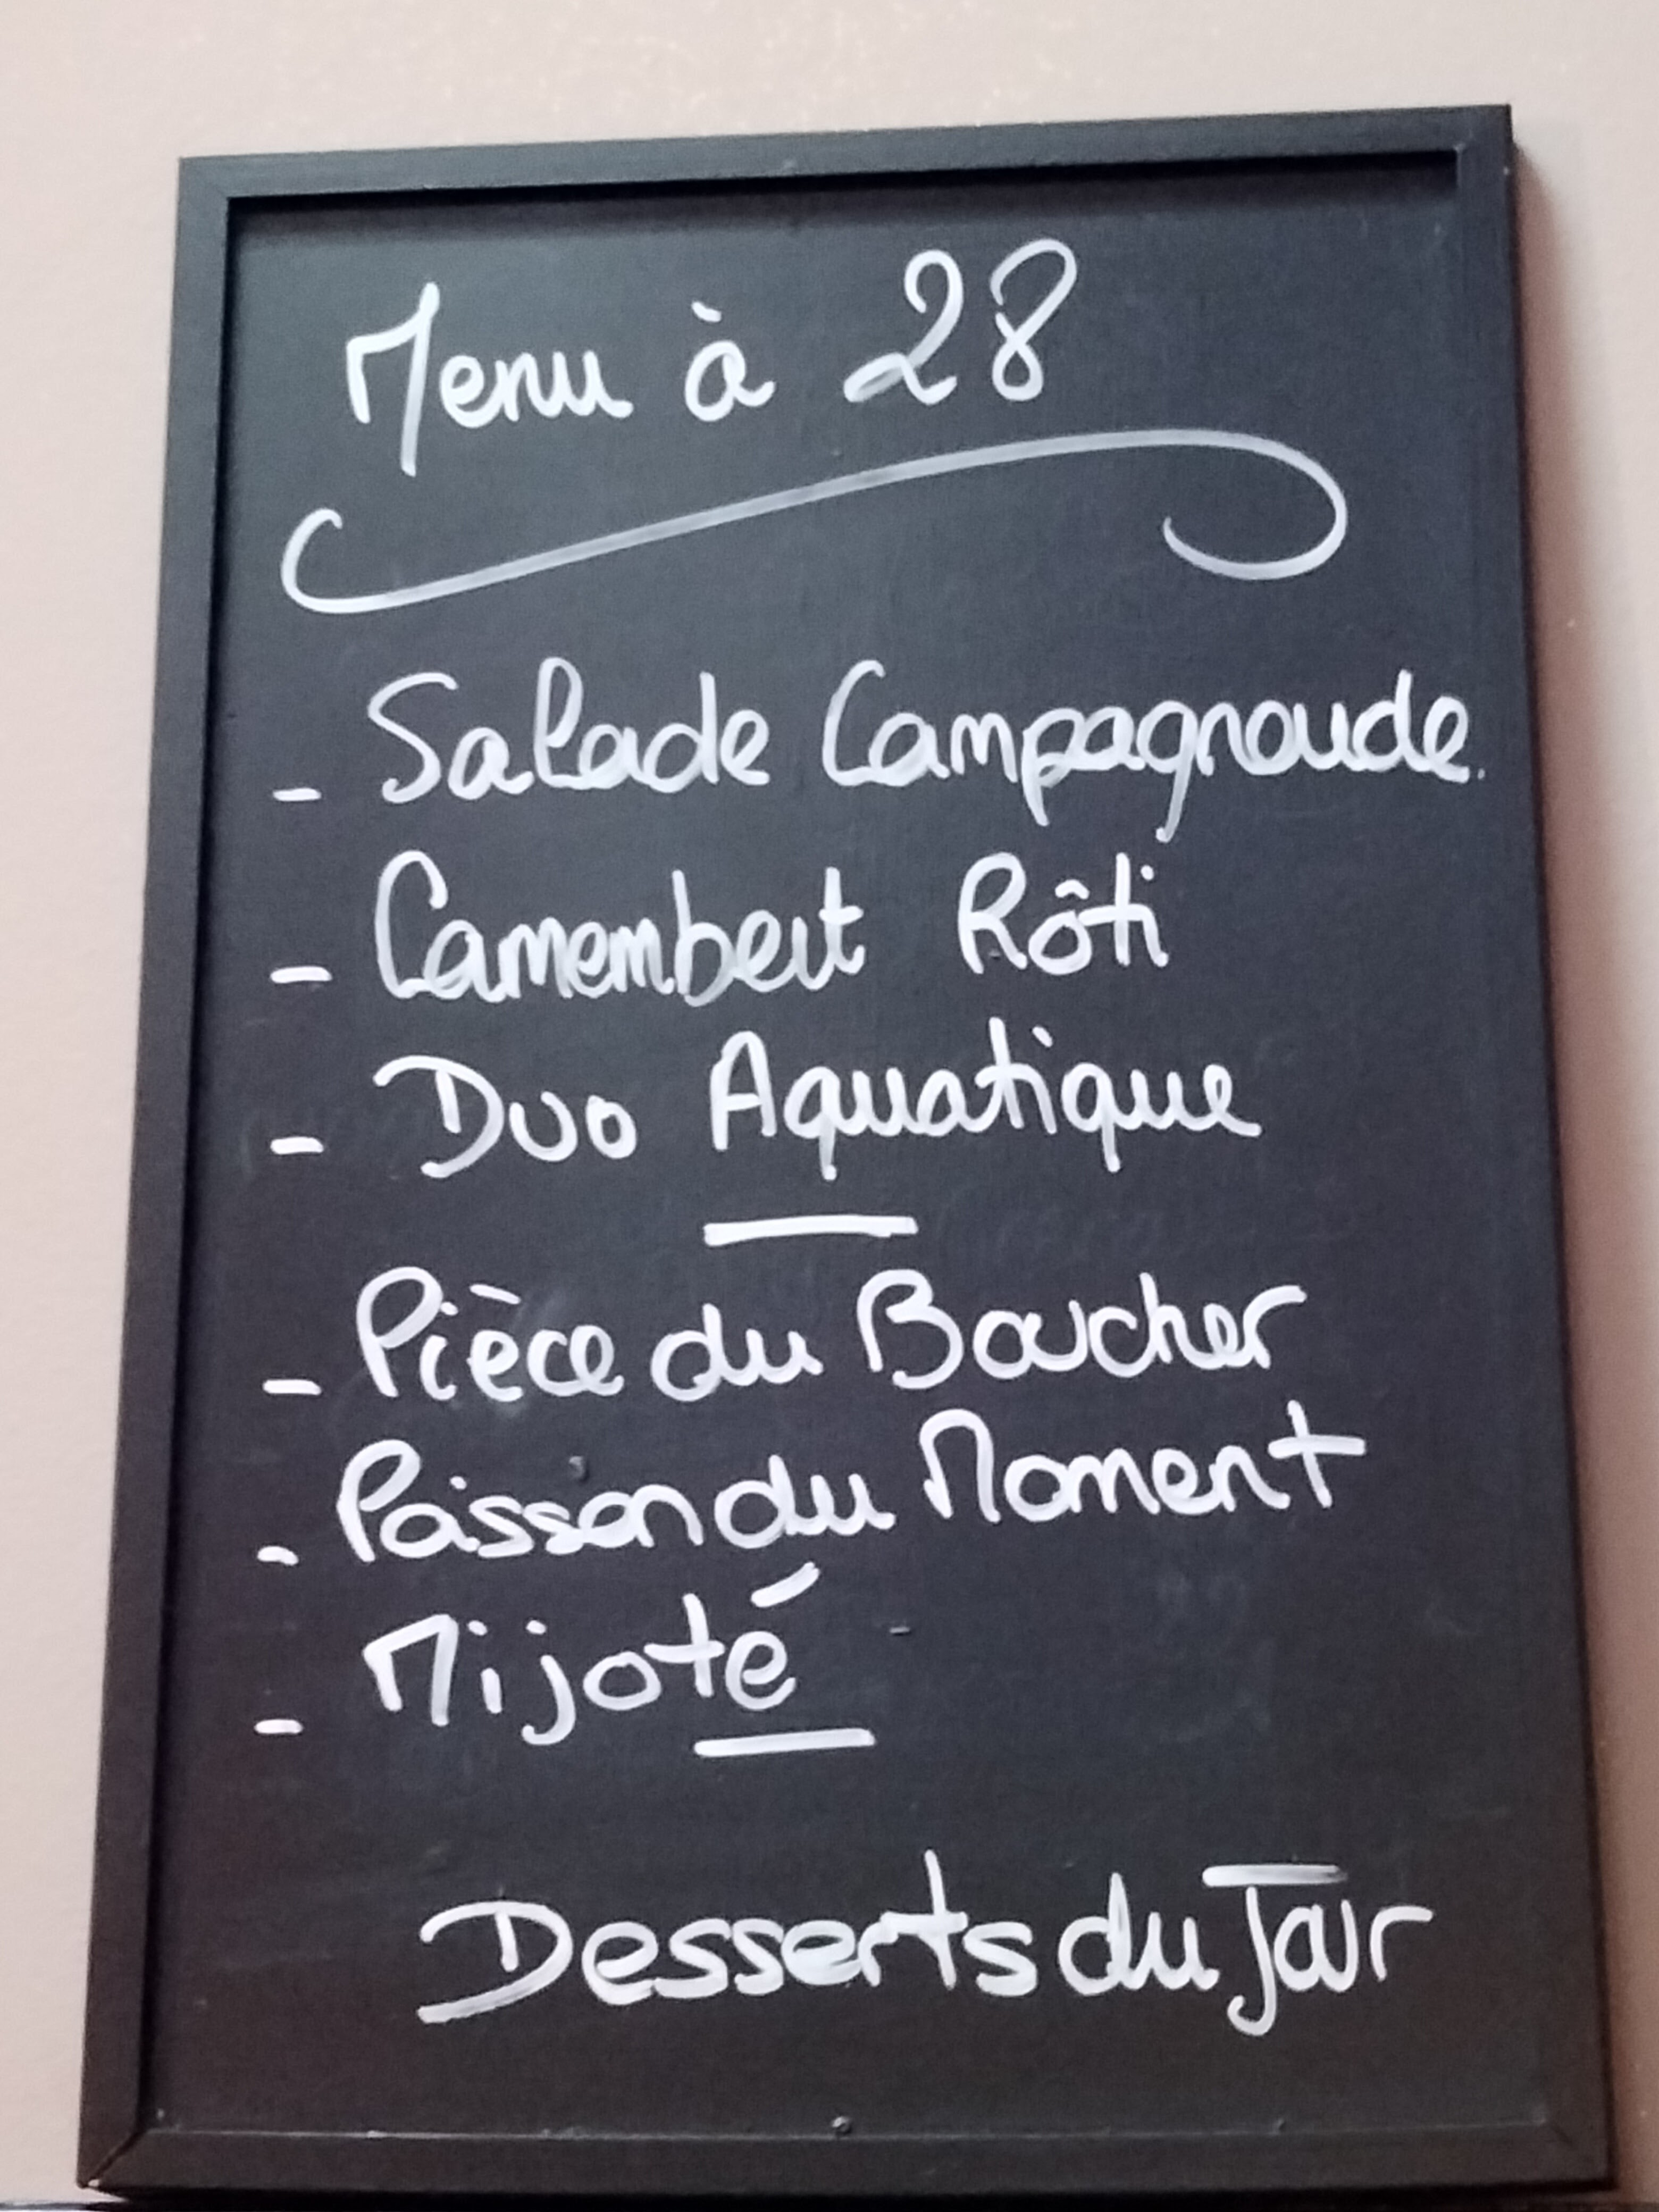 Menu à 28
- Salade Campagnarde.
- Camembert Rôti
- Duo Aquatique
- Pièce du Boucher
- Poisson du Moment
- Mijoté
Desserts du Jour